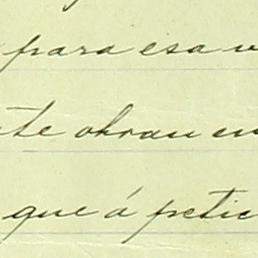 para esa
te obran en
que á petic